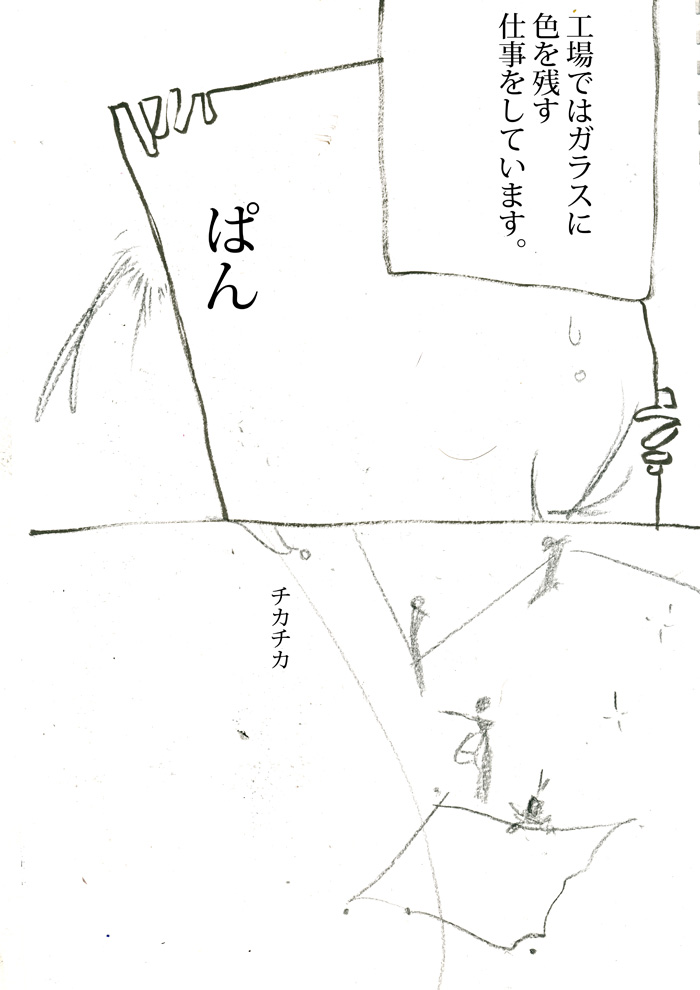 工場ではガラスに
色を残す
仕事をしています。
ぱん
チカチカ